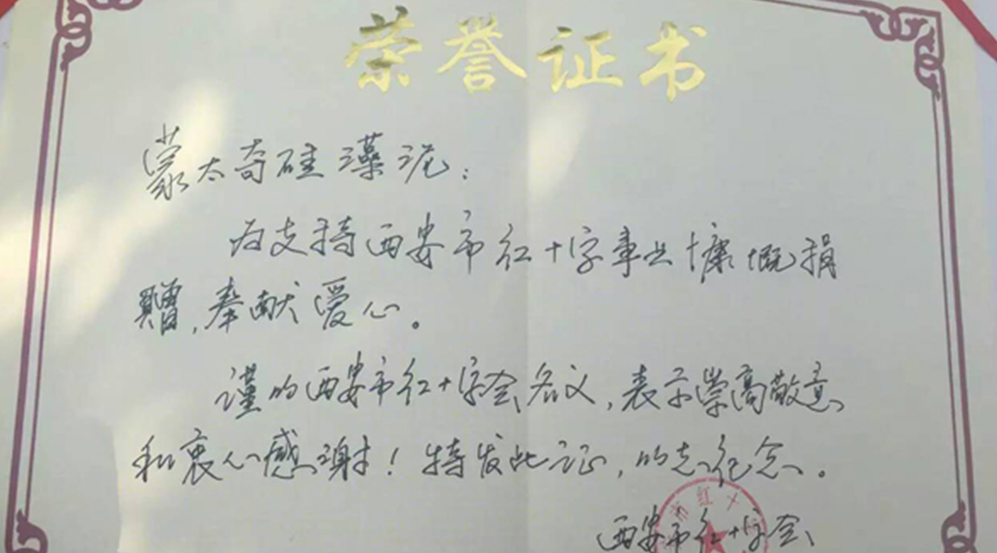 荣誉证书
蒙太奇硅藻泥：
为支持西安市红十字事业慷慨捐
赠，奉献爱心。
谨以西安市红十字会名义，表示崇高敬意
和衷心感谢！特发此证，以志纪念。
市红十
西安市红十字会